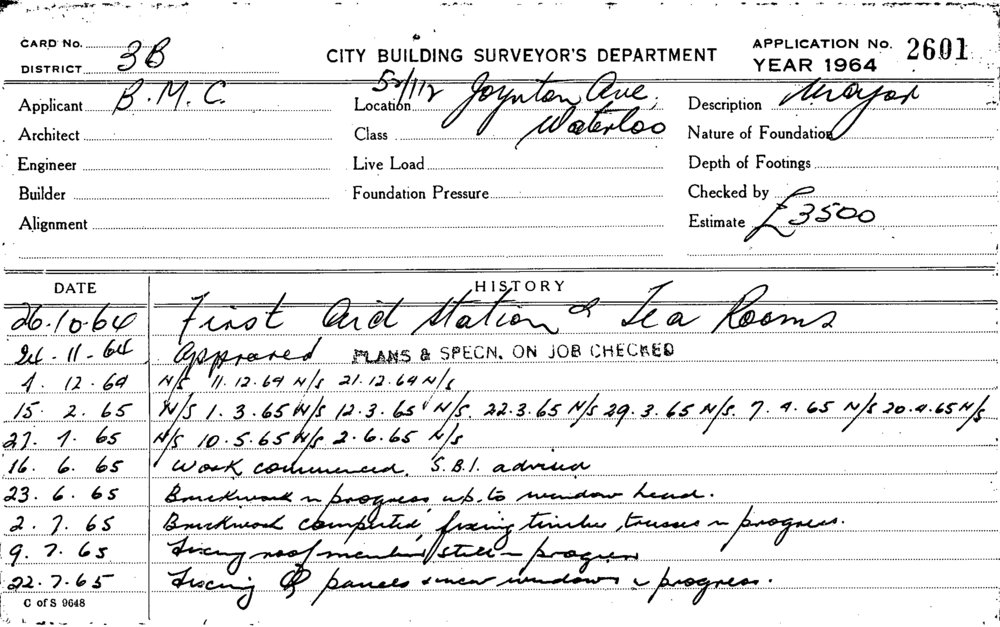 CARD No. 3B
DISTRICT
CITY BUILDING SURVEYOR'S DEPARTMENT
APPLICATION No. 2601
YEAR 1964
Applicant B.M.C.
Location 52/112 Joynton Ave,
Waterloo
Description
Architect
Class
Nature of Foundation
Engineer
Live Load
Depth of Footings
Builder
Foundation Pressure
Checked by
Alignment
Estimate £3500
DATE HISTORY
26.10.64 First Aid Station & Tea Rooms
24.11.64 Approved PLANS & SPECN. ON JOB CHECKED
1.12.64 N/S 11.12.64 N/S 21.12.64 N/S
15.2.65 N/S 1.3.65 N/S 12.3.65 N/S 22.3.65 N/S 29.3.65 N/S 7.4.65 N/S 20.4.65 N/S
27.4.65 N/S 10.5.65 N/S 2.6.65 N/S
16.6.65 Work commenced. S.B.I. advised
23.6.65 Brickwork in progress up to window head.
2.7.65 Brickwork completed, fixing timber trusses in progress.
9.7.65 Fixing roof members still in progress
22.7.65 Fixing of panels & windows in progress.
C of S 9648